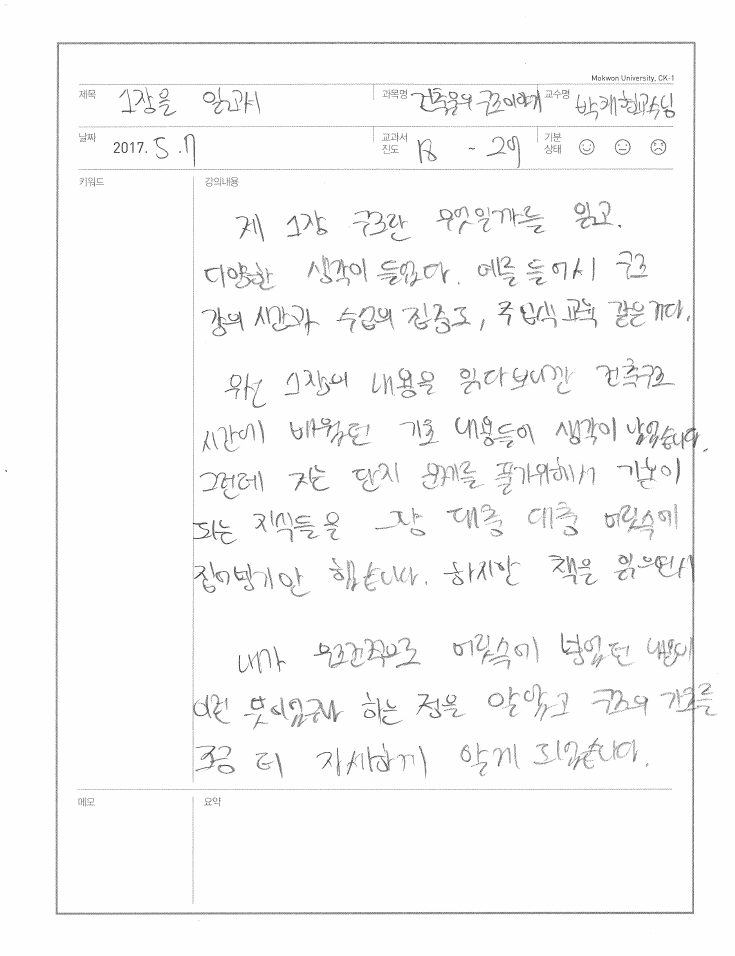 Mokwon University, CK-1
제목 1장을 읽고서 과목명 건축물의 구조이야기 교수명 박채현교수님
날짜 2017. 5 . 7 교과서 진도 18 - 29 기분 상태
키워드 강의내용
제 1장 구조란 무엇일까를 읽고.
다양한 생각이 들었다. 예를 들어서 구조
강의 시간과 수업의 집중도, 주입식 교육 같은거다.
우선 1장의 내용을 읽다보니깐 건축구조
시간에 배웠던 기초 내용들이 생각이 났었습니다.
그런데 저는 단지 문제를 풀기위해서 기본이
되는 지식들을 그냥 대충 대충 머릿속에
집어넣기만 했습니다. 하지만 책을 읽으면서
내가 무조건적으로 머릿속에 넣었던 내용이
이런 뜻이었구나 하는 점을 알았고 구조의 기초를
조금 더 자세하게 알게 되었습니다.
메모 요약